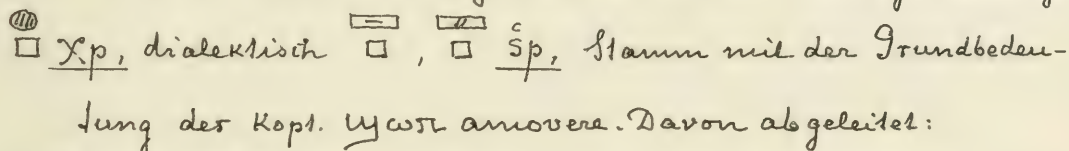 𓐍𓊪 χp, dialektisch 𓈙𓊪, 𓈚𓊪 šp, Stamm mit der Grundbedeu-
tung der Kopt. ϣωπ amovere. Davon abgeleitet: